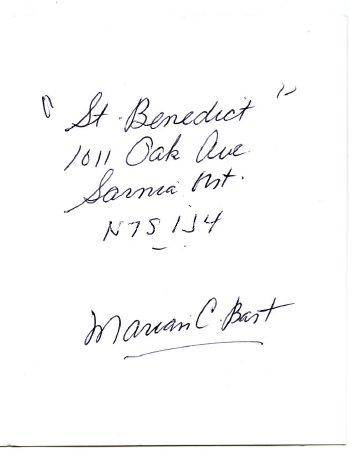 "St. Benedict"
1011 Oak Ave.
Sarnia Ont.
N7S 1J4
Marian C. Bart